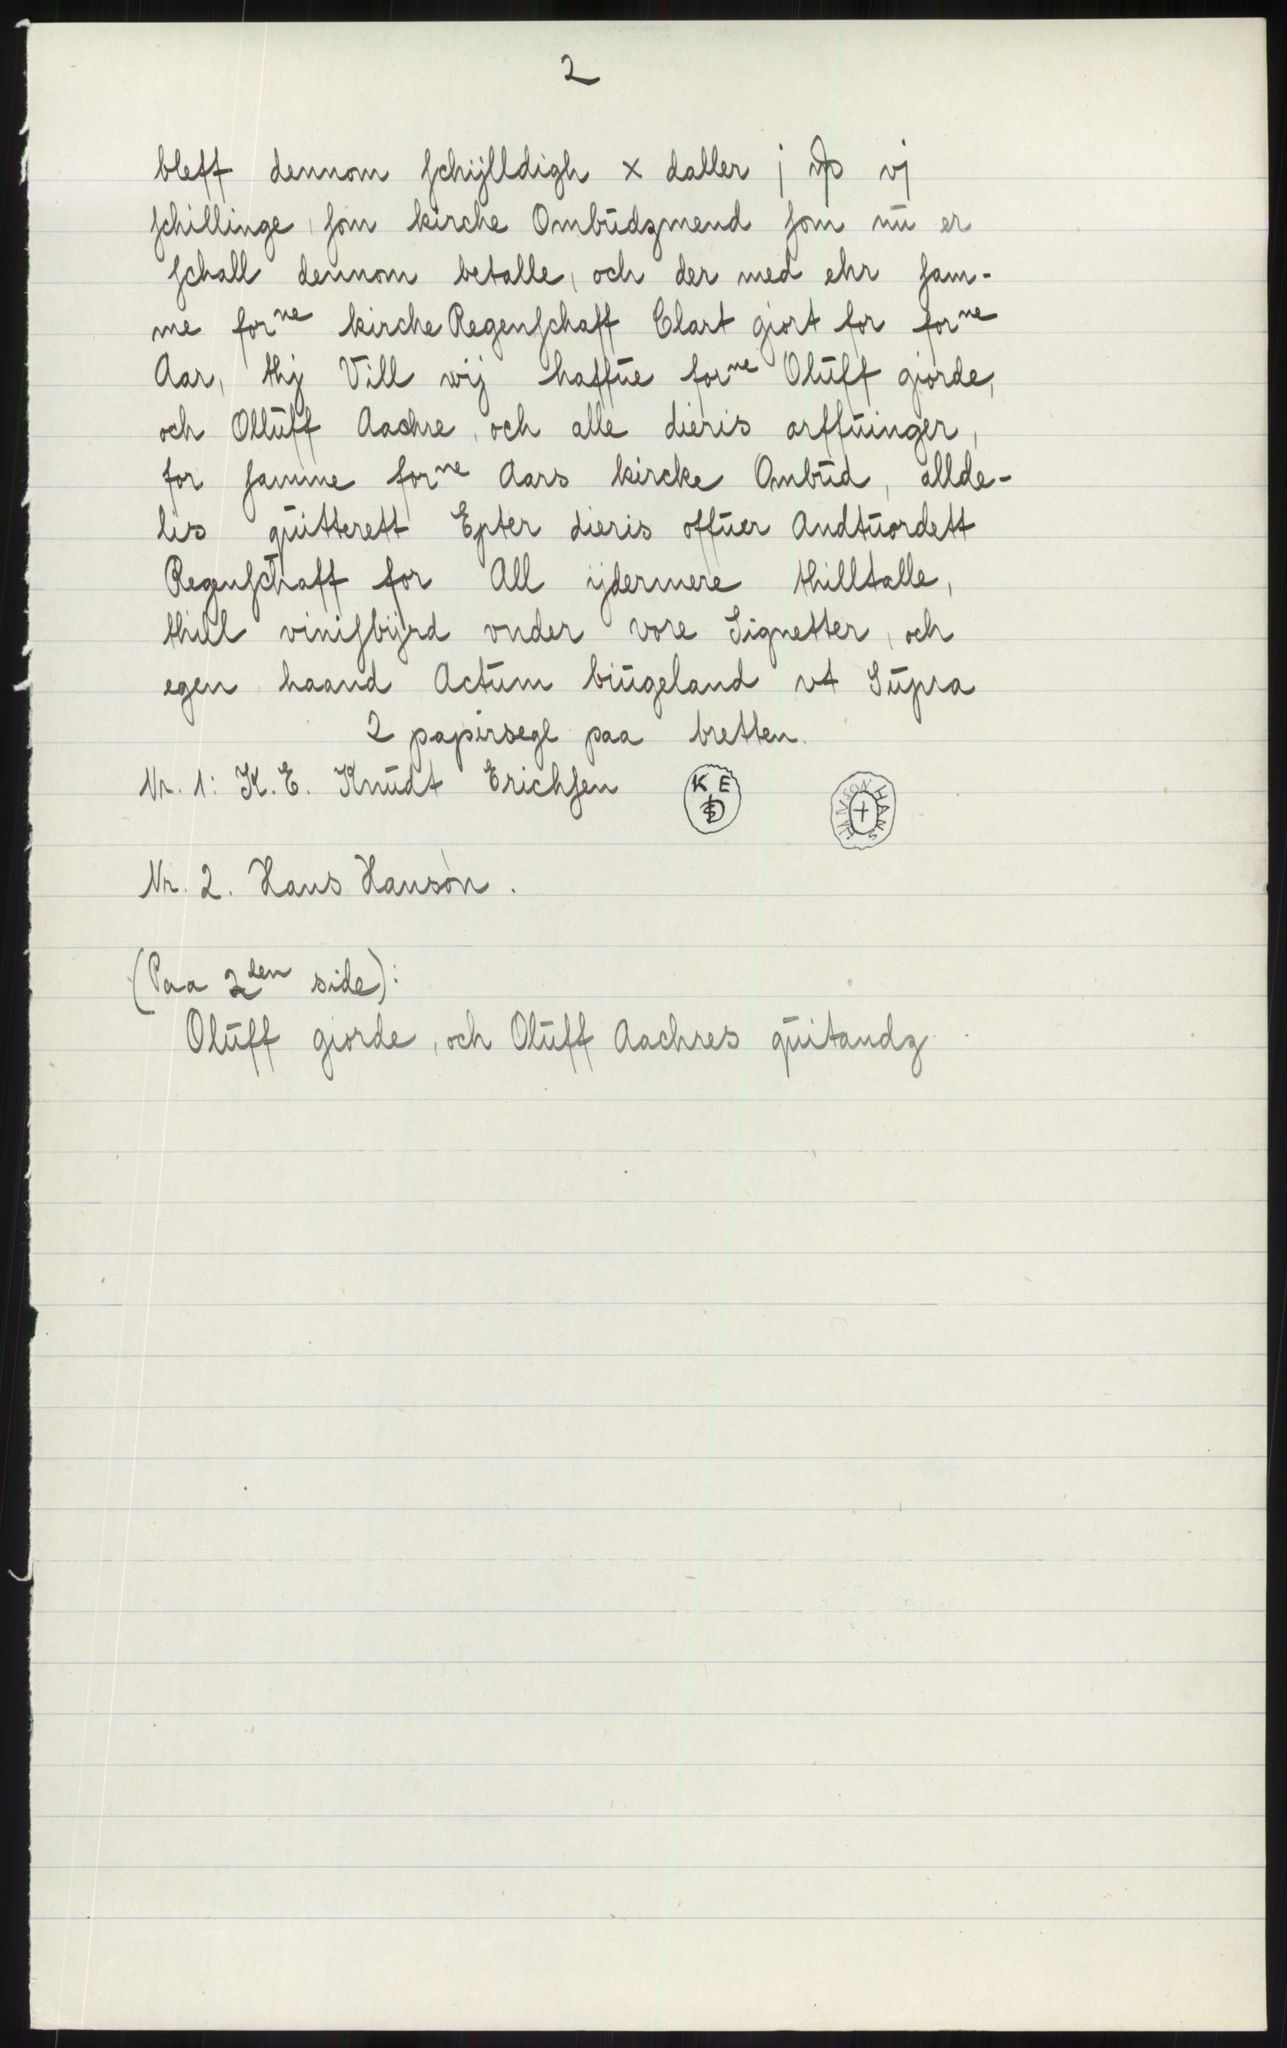 2
bleff dennom ſchijlldigh x daller j vj
ſchillinge, ſom kirche Ombudzmend ſom nu er
ſchall dennom betalle, och der med ehr ſam-
me forne kirche Regenſchaff Clart giort for forne
Aar, thj Vill wij haffue forne Oluff giorde,
och Olluff Aachre, och alle dieris arffuinger,
for ſamme forne Aars kircke Ombud, allde-
lis quitterett Epter dieris offuer Andtuordett
Regenſchaff for All ijdermere thilltalle,
thill viniſbijrd vnder vore Signetter, och
egen haand Actum biugeland vt Supra
2 papirsegl paa bretten.
Nr. 1: K. E. Knudt Erichſen K E HANS HANSON
Nr. 2. Hans Hanson.
(Paa 2den side):
Oluff giorde, och Oluff Aachres quitandz